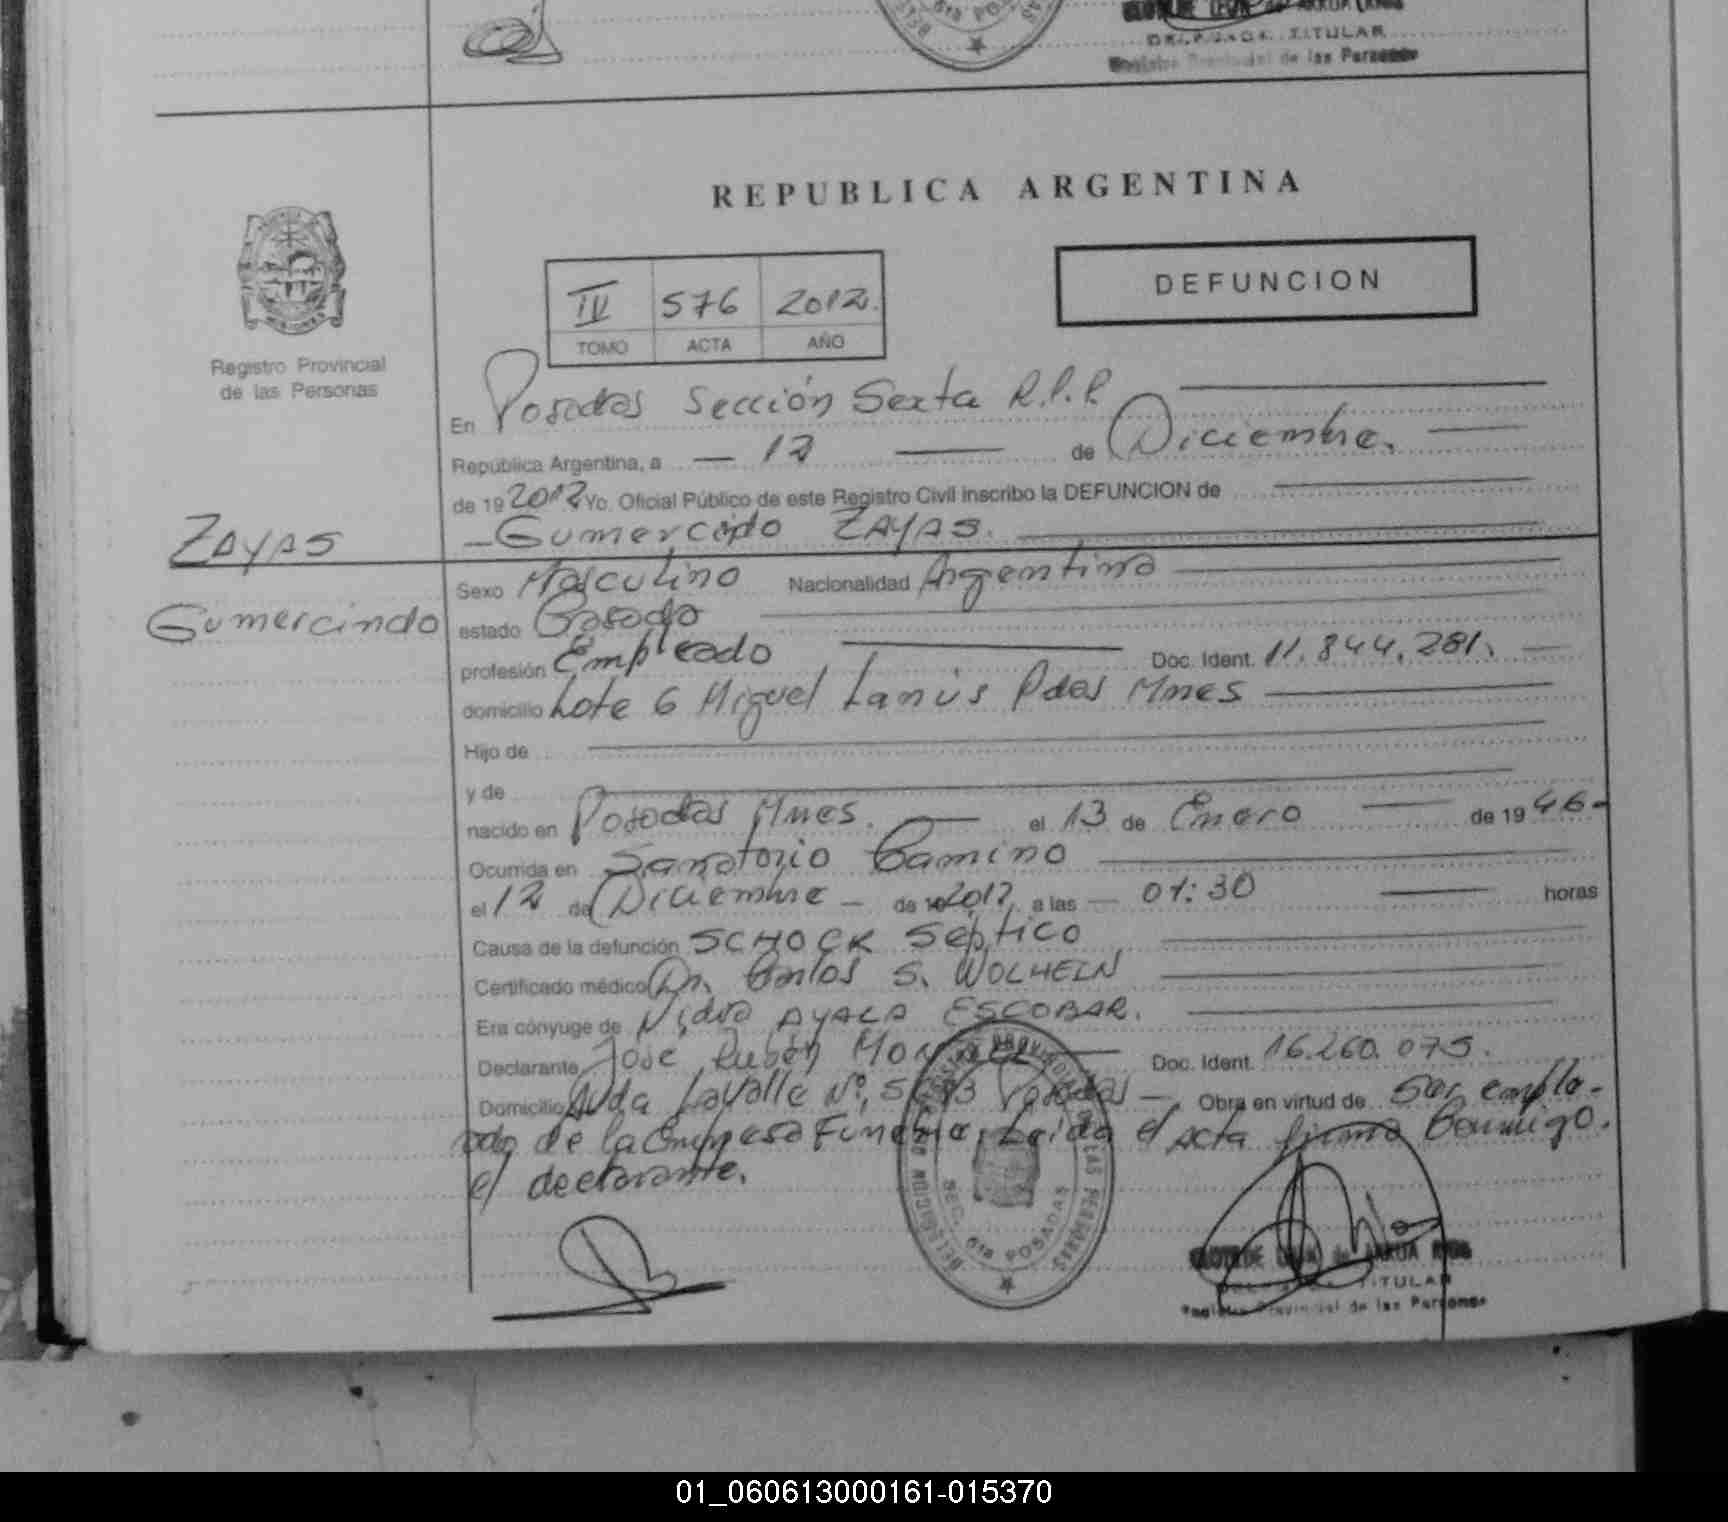 DELEGADA TITULAR
Registro Provincial de las Personas
REPUBLICA ARGENTINA
DEFUNCION
IV 576 2012.
TOMO ACTA AÑO
Registro Provincial
de las Personas
En Posadas Sección Sexta R.P.P.
República Argentina, a 12 de Diciembre.
de 19 2012 Yo. Oficial Público de este Registro Civil inscribo la DEFUNCION de
ZAYAS
Gumercindo ZAYAS.
Sexo Masculino Nacionalidad Argentina
Gumercindo
estado Casado
profesión Empleado Doc. Ident. 11.844.281.
domicilio Lote 6 Miguel Lanús Pdas Mnes
Hijo de
y de
nacido en Posadas Mnes. el 13 de Enero de 19 46-
Ocurrida en Sanatorio Camino
el 12 de Diciembre - de 19 2012 a las 01:30 horas
Causa de la defunción SCHOCK Séptico
Certificado médico Dr. Carlos S. WOLHEIN
Era cónyuge de Nidia AYALA ESCOBAR.
Declarante José Rubén Doc. Ident. 16.260.075.
Domicilio Avda Lavalle Nº Posadas - Obra en virtud de Ser emplea-
do de la Empresa Fúnebre, Leída el Acta firma Conmigo.
el declarante.
REGISTRO PROVINCIAL DE LAS PERSONAS
DELEGACION
SEC. 6ta POSADAS
DELEGADA TITULAR
Registro Provincial de las Personas
01_060613000161-015370